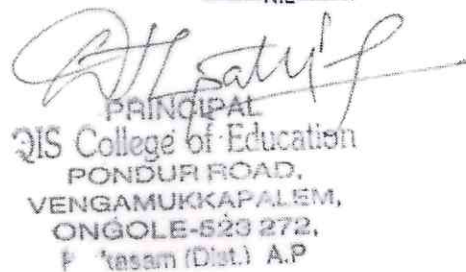 NIL
PRINCIPAL
QIS College of Education
PONDUR ROAD,
VENGAMUKKAPALEM,
ONGOLE-523 272,
(Dist.) A.P